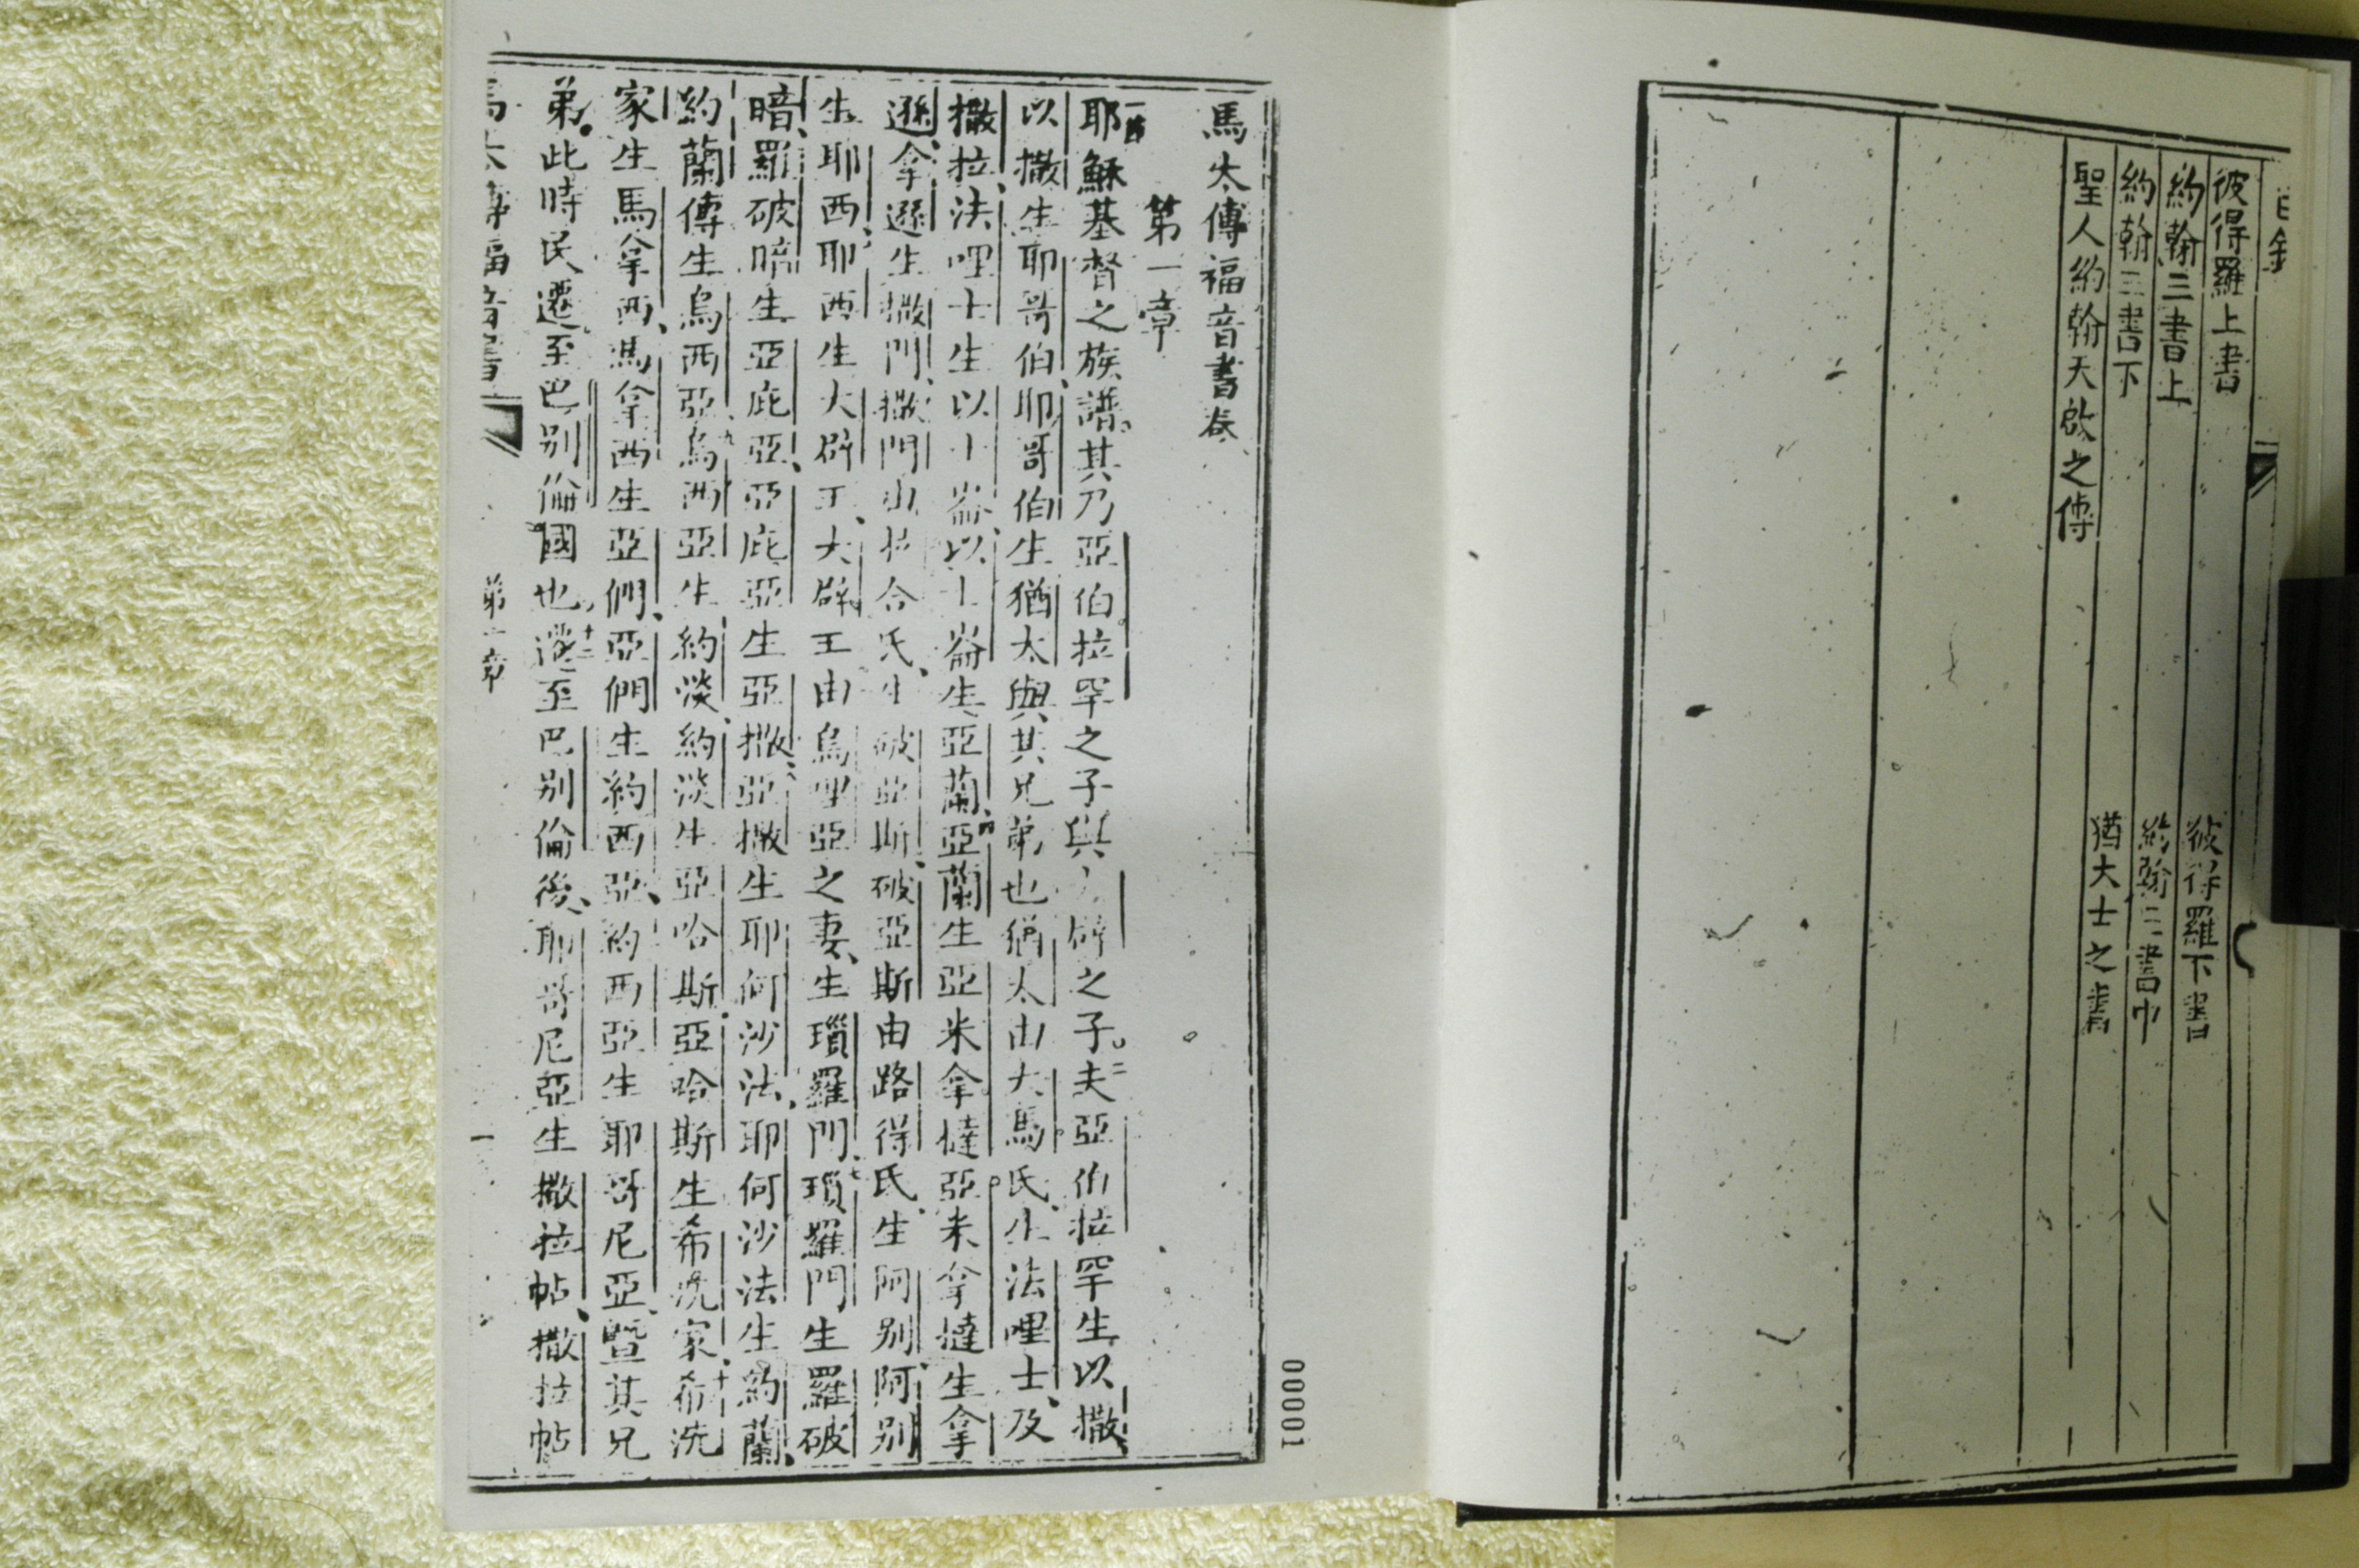 目錄
彼得羅上書
彼得羅下書
約翰三書上
約翰三書中
約翰三書下
猶大士之書
聖人約翰天啟之傳
馬太傳福音書卷
第一章
一節
耶穌基督之族譜其乃亞伯拉罕之子與大辟之子。二夫亞伯拉罕生以撒、
以撒生耶哥伯、耶哥伯生猶太與其兄弟也猶太由大馬氏生法哩士、及
撒拉、法哩士生以士崙、以士崙生亞蘭、四亞蘭生亞米拿撻亞米拿撻生拿
遜、拿遜生撒門、撒門由拉合氏、生破亞斯、破亞斯由路得氏、生阿別、阿別
生耶西、耶西生大辟王、大辟王由烏哩亞之妻、生瑣羅門、七瑣羅門生羅破
暗、羅破暗生亞庇亞、亞庇亞生亞撒、亞撒生耶何沙法、耶何沙法生約蘭、
約蘭傳生烏西亞、九烏西亞生約淡、約淡生亞哈斯、亞哈斯生希洗家、十希洗
家生馬拿西、馬拿西生亞們、亞們生約西亞、約西亞生耶哥尼亞、暨其兄
弟。此時民遷至巴別倫國也、十二遷至巴別倫後、耶哥尼亞生撒拉帖、撒拉帖
馬太傳福音書
第一章
一
00001